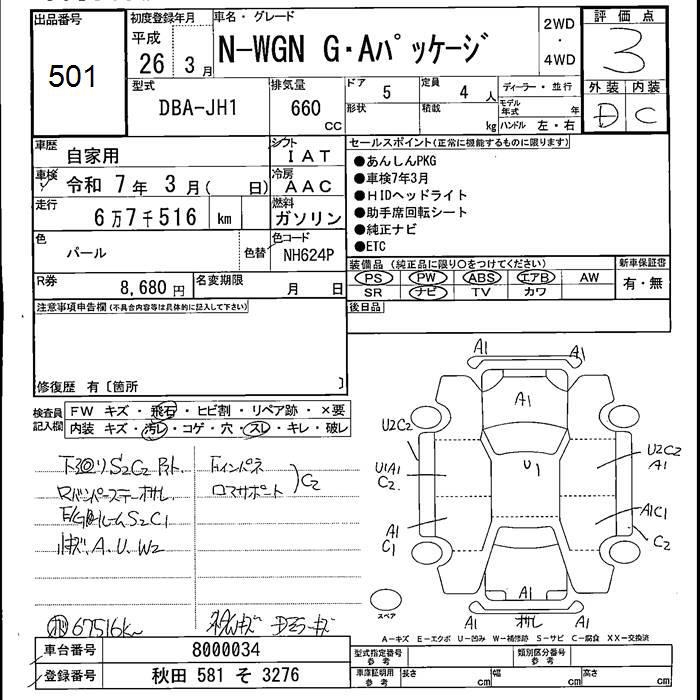 出品番号
501
初度登録年月
平成
26 3月
車名・グレード
N-WGN G・Aパッケージ
2WD
・
4WD
評価点
3
外装 内装
D C
型式
DBA-JH1
排気量
660
CC
ドア
5
定員
4 人
形状
積載
kg
ディーラー・並行
モデル年式 年
ハンドル 左・右
車歴
自家用
シフト
IAT
車検 令和 7年 3月( 日)
冷房
AAC
走行
6万7千516 km
燃料
ガソリン
色
パール
色替
色コード
NH624P
R券
8,680 円
名変期限
月 日
セールスポイント(正常に機能するものに限ります)
●あんしんPKG
●車検7年3月
●HIDヘッドライト
●助手席回転シート
●純正ナビ
●ETC
装備品 (純正品に限り○をつけてください)
PS PW ABS エアB AW
SR ナビ TV カワ
新車保証書
有・無
後日品
注意事項申告欄(不具合内容等は具体的に記入して下さい)
修復歴 有〔箇所 〕
検査員記入欄
FW キズ・飛石・ヒビ割・リペア跡・×要
内装 キズ・汚レ・コゲ・穴・スレ・キレ・破レ
下廻りS2C2
小キズ、A.U.W2
C2
67516k
A1
A1
A1
U2C2
U2C2
A1
U1A1
C2
U1
A1C1
A1
C1
C2
A1
A1
A1
スペア
A-キズ E-エクボ U-凹み W-補修跡 S-サビ C-腐食 XX-交換済
車台番号
8000034
登録番号
秋田 581 そ 3276
型式指定番号
参考
類別区分番号
参考
車庫証明用
参考
長さ cm 幅 cm 高さ cm